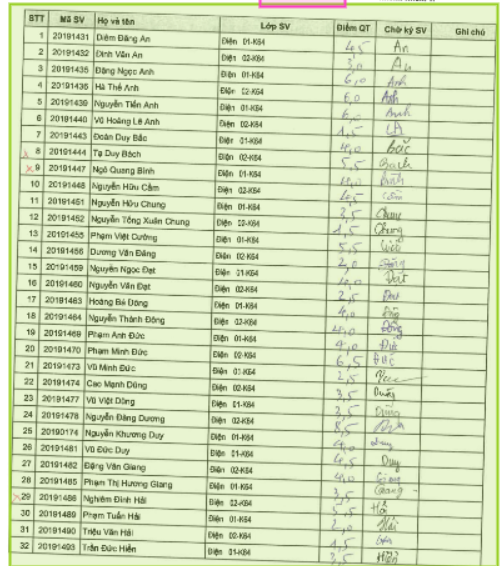 STT Mã SV Họ và tên Lớp SV Điểm QT Chữ ký SV Ghi chú
1 20191431 Diêm Đăng An Điện 01-K64 4,5 An
2 20191432 Đinh Văn An Điện 02-K64 3,0 An
3 20191435 Đặng Ngọc Anh Điện 01-K64 6,0 Anh
4 20191436 Hà Thế Anh Điện 02-K64 6,0 Anh
5 20191439 Nguyễn Tiến Anh Điện 01-K64 Anh
6 20191440 Vũ Hoàng Lê Anh Điện 02-K64 1,5
7 20191443 Đoàn Duy Bắc Điện 01-K64 4,0 Bắc
8 20191444 Tạ Duy Bách Điện 02-K64 5,5 Bách
x 9 20191447 Ngô Quang Bình Điện 01-K64 Bình
10 20191448 Nguyễn Hữu Cầm Điện 02-K64 4,5
11 20191451 Nguyễn Hữu Chung Điện 01-K64 3,5 Chung
12 20191452 Nguyễn Tông Xuân Chung Điện 02-K64 1,5 Chung
13 20191455 Phạm Việt Cường Điện 01-K64 5,5
14 20191456 Dương Văn Đăng Điện 02-K64 2,0
15 20191459 Nguyễn Ngọc Đạt Điện 01-K64 Đạt
16 20191460 Nguyễn Văn Đạt Điện 02-K64 2,5
17 20191463 Hoàng Bé Dông Điện 01-K64 4,0
18 20191464 Nguyễn Thành Đông Điện 02-K64 4,0 Đông
19 20191469 Phạm Anh Đức Điện 01-K64 4,0 Đức
20 20191470 Phạm Minh Đức Điện 02-K64 6,5 Đức
21 20191473 Vũ Minh Đức Điện 01-K64 2,5
22 20191474 Cao Mạnh Dũng Điện 02-K64 3,5 Dũng
23 20191477 Vũ Việt Dũng Điện 01-K64 3,5 Dũng
24 20191478 Nguyễn Đăng Dương Điện 02-K64 8,5
25 20190174 Nguyễn Khương Duy Điện 01-K64
26 20191481 Vũ Đức Duy Điện 01-K64 4,5 Duy
27 20191482 Đặng Văn Giang Điện 02-K64 4,0 Giang
28 20191485 Phạm Thị Hương Giang Điện 01-K64 3,5 Giang
x 29 20191486 Nghiêm Đình Hải Điện 02-K64 5,5 Hải
30 20191489 Phạm Tuấn Hải Điện 01-K64 2,0 Hải
31 20191490 Triệu Văn Hải Điện 02-K64 4,5
32 20191493 Trần Đức Hiền Điện 01-K64 3,5